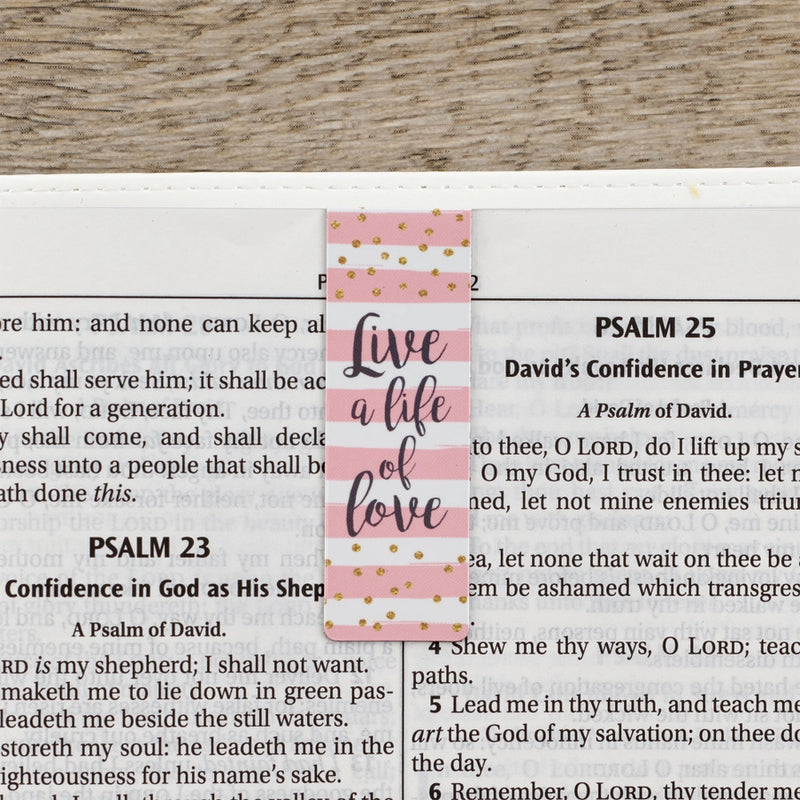 Live
a life
of
love
ore him: and none can keep
ed shall serve him; it shall be
Lord for a generation.
shall come, and shall
sness unto a people that shall
ath done this.
PSALM 23
Confidence in God as His
A Psalm of David.
is my shepherd; I shall not want.
maketh me to lie down in green pas-
leadeth me beside the still waters.
storeth my soul: he leadeth me in the
ighteousness for his name's sake.
PSALM 25
David's Confidence in Prayer
A Psalm of David.
to thee, O LORD, do I lift up my
O my God, I trust in thee: let
let not mine enemies
let none that wait on thee be
be ashamed which
4 Shew me thy ways, O LORD;
paths.
5 Lead me in thy truth, and teach me
art the God of my salvation; on thee do
the day.
6 Remember, O LORD, thy tender